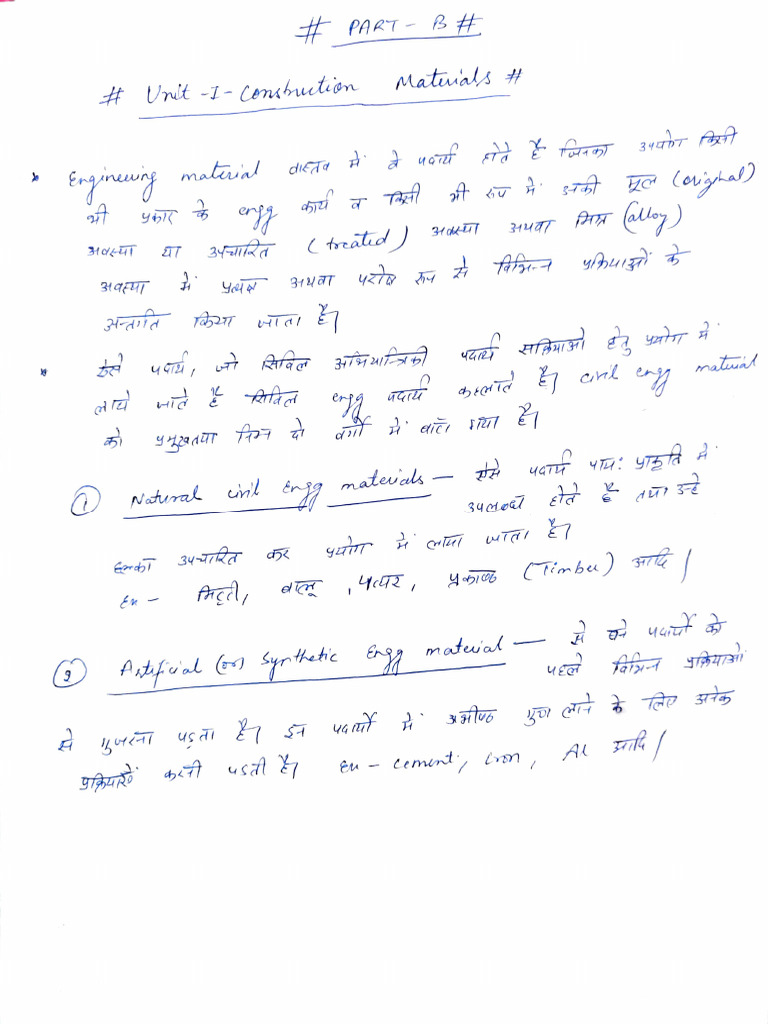 # PART - B #
# Unit - I - Construction Materials #
* Engineering material वास्तव में वे पदार्थ होते हैं जिनका उपयोग किसी
भी प्रकार के engg कार्य व किसी भी रूप में उनकी मूल (original)
अवस्था या उपचारित (treated) अवस्था अथवा मिश्र (alloy)
अवस्था में प्रत्यक्ष अथवा परोक्ष रूप से विभिन्न प्रक्रियाओं के
अन्तर्गत किया जाता है।
* ऐसे पदार्थ, जो सिविल अभियान्त्रिकी पदार्थ सक्रियाओ हेतु प्रयोग में
लाये जाते है सिविल engg पदार्थ कहलाते है। civil engg material
को प्रमुखतया निम्न दो वर्गों में बांटा गया है।
① Natural civil Engg materials — ऐसे पदार्थ प्राय: प्रकृति में
उपलब्ध होते है तथा उन्हे
उपचारित कर प्रयोग में लाया जाता है।
Ex - मिट्टी, बालू, पत्थर, प्रकाष्ठ (Timber) आदि।
② Artificial (or) Synthetic Engg material — से बने पदार्थो को
पहले विभिन्न प्रक्रियाओं
से गुजरना पड़ता है। इन पदार्थो में अभीष्ठ गुण लाने के लिए अनेक
प्रक्रियाऐं करनी पडती है। Ex - cement, Iron, Al आदि।